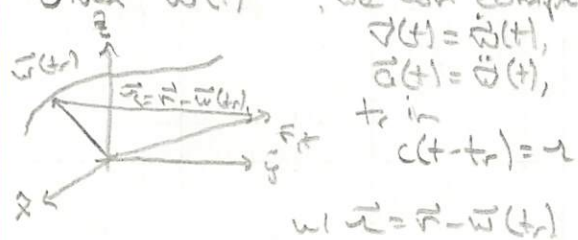 Given w⃗(t), we can comp
v⃗(t) = ẇ⃗(t),
a⃗(t) = ẅ⃗(t),
tᵣ in
c(t-tᵣ) = 𝓇
w/ 𝓇⃗ = r⃗ - w⃗(tᵣ)
ẑ
w⃗(tᵣ)
𝓇⃗ = r⃗ - w⃗(tᵣ)
r⃗,t
ŷ
x̂